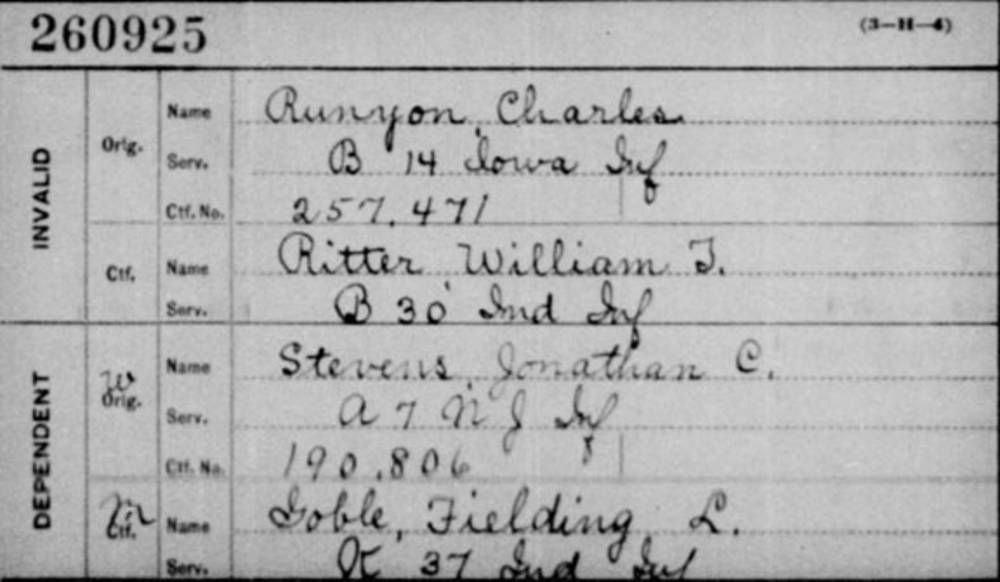 260925 (3—H—4)
INVALID
Orig. Name Runyon, Charles
Serv. B 14 Iowa Inf
Ctf. No. 257.471
Ctf. Name Ritter William T.
Serv. B 30 Ind Inf
DEPENDENT
W Orig. Name Stevens, Jonathan C.
Serv. A 7 N J Inf
Ctf. No. 190.806
Ctf. Name Goble, Fielding L.
Serv. K 37 Ind Inf